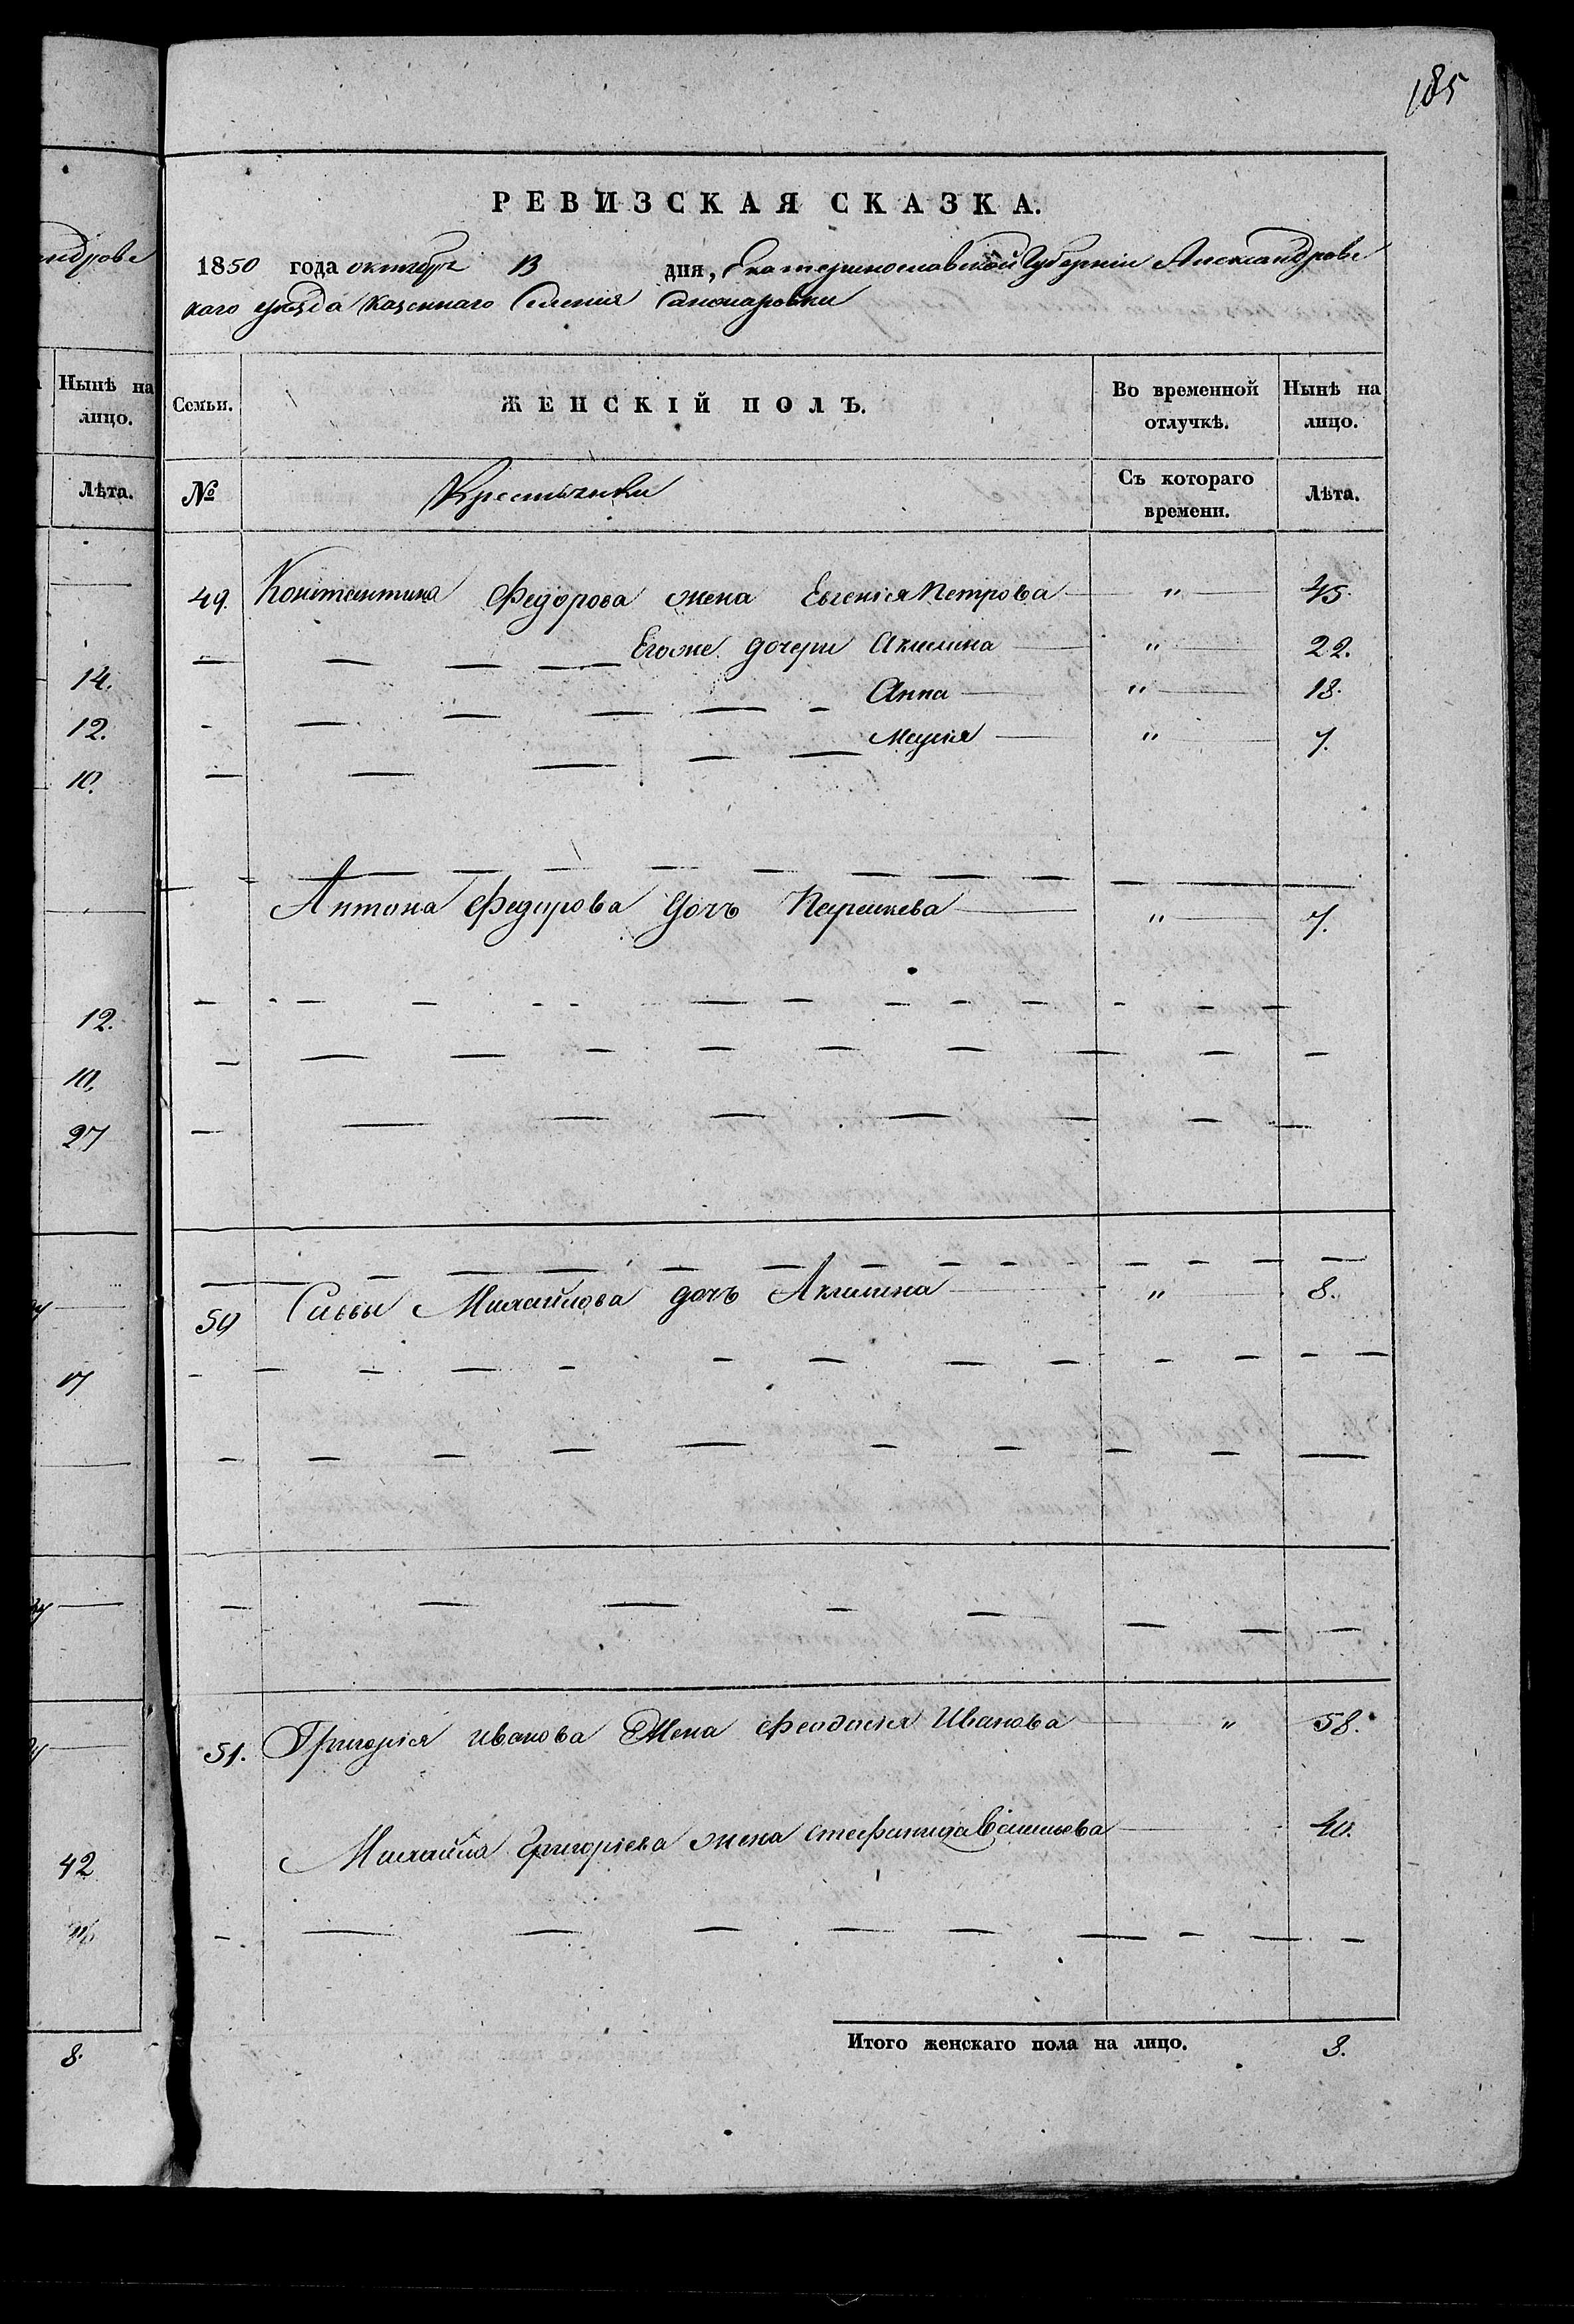 185
ндровс
Ныне на
лицо.
Лѣта.
14.
12.
10.
12.
10.
27
17
42
8.
РЕВИЗСКАЯ СКАЗКА.
1850 года октября 13 дня, Екатеринославской Губерніи Александровс
каго уѣзда Казеннаго Селенія
Семьи. ЖЕНСКІЙ ПОЛЪ. Во временной отлучкѣ. Нынѣ на лицо.
№ Крестьянки Съ котораго времени. Лѣта.
49. Констинтина Федорова жена Евгенія Петрова " 45.
Егоже дочери Акилина " 22.
Анна " 18.
" 7.
Антона Федорова Дочь Параскева " 7.
50 Саввы Михайлова дочь Акилина " 8.
51. Григорія Иванова Жена Феодосія Иванова " 58.
Михайла Григоріева жена Стефанида Васильева 40.
Итого женскаго пола на лицо. 8.